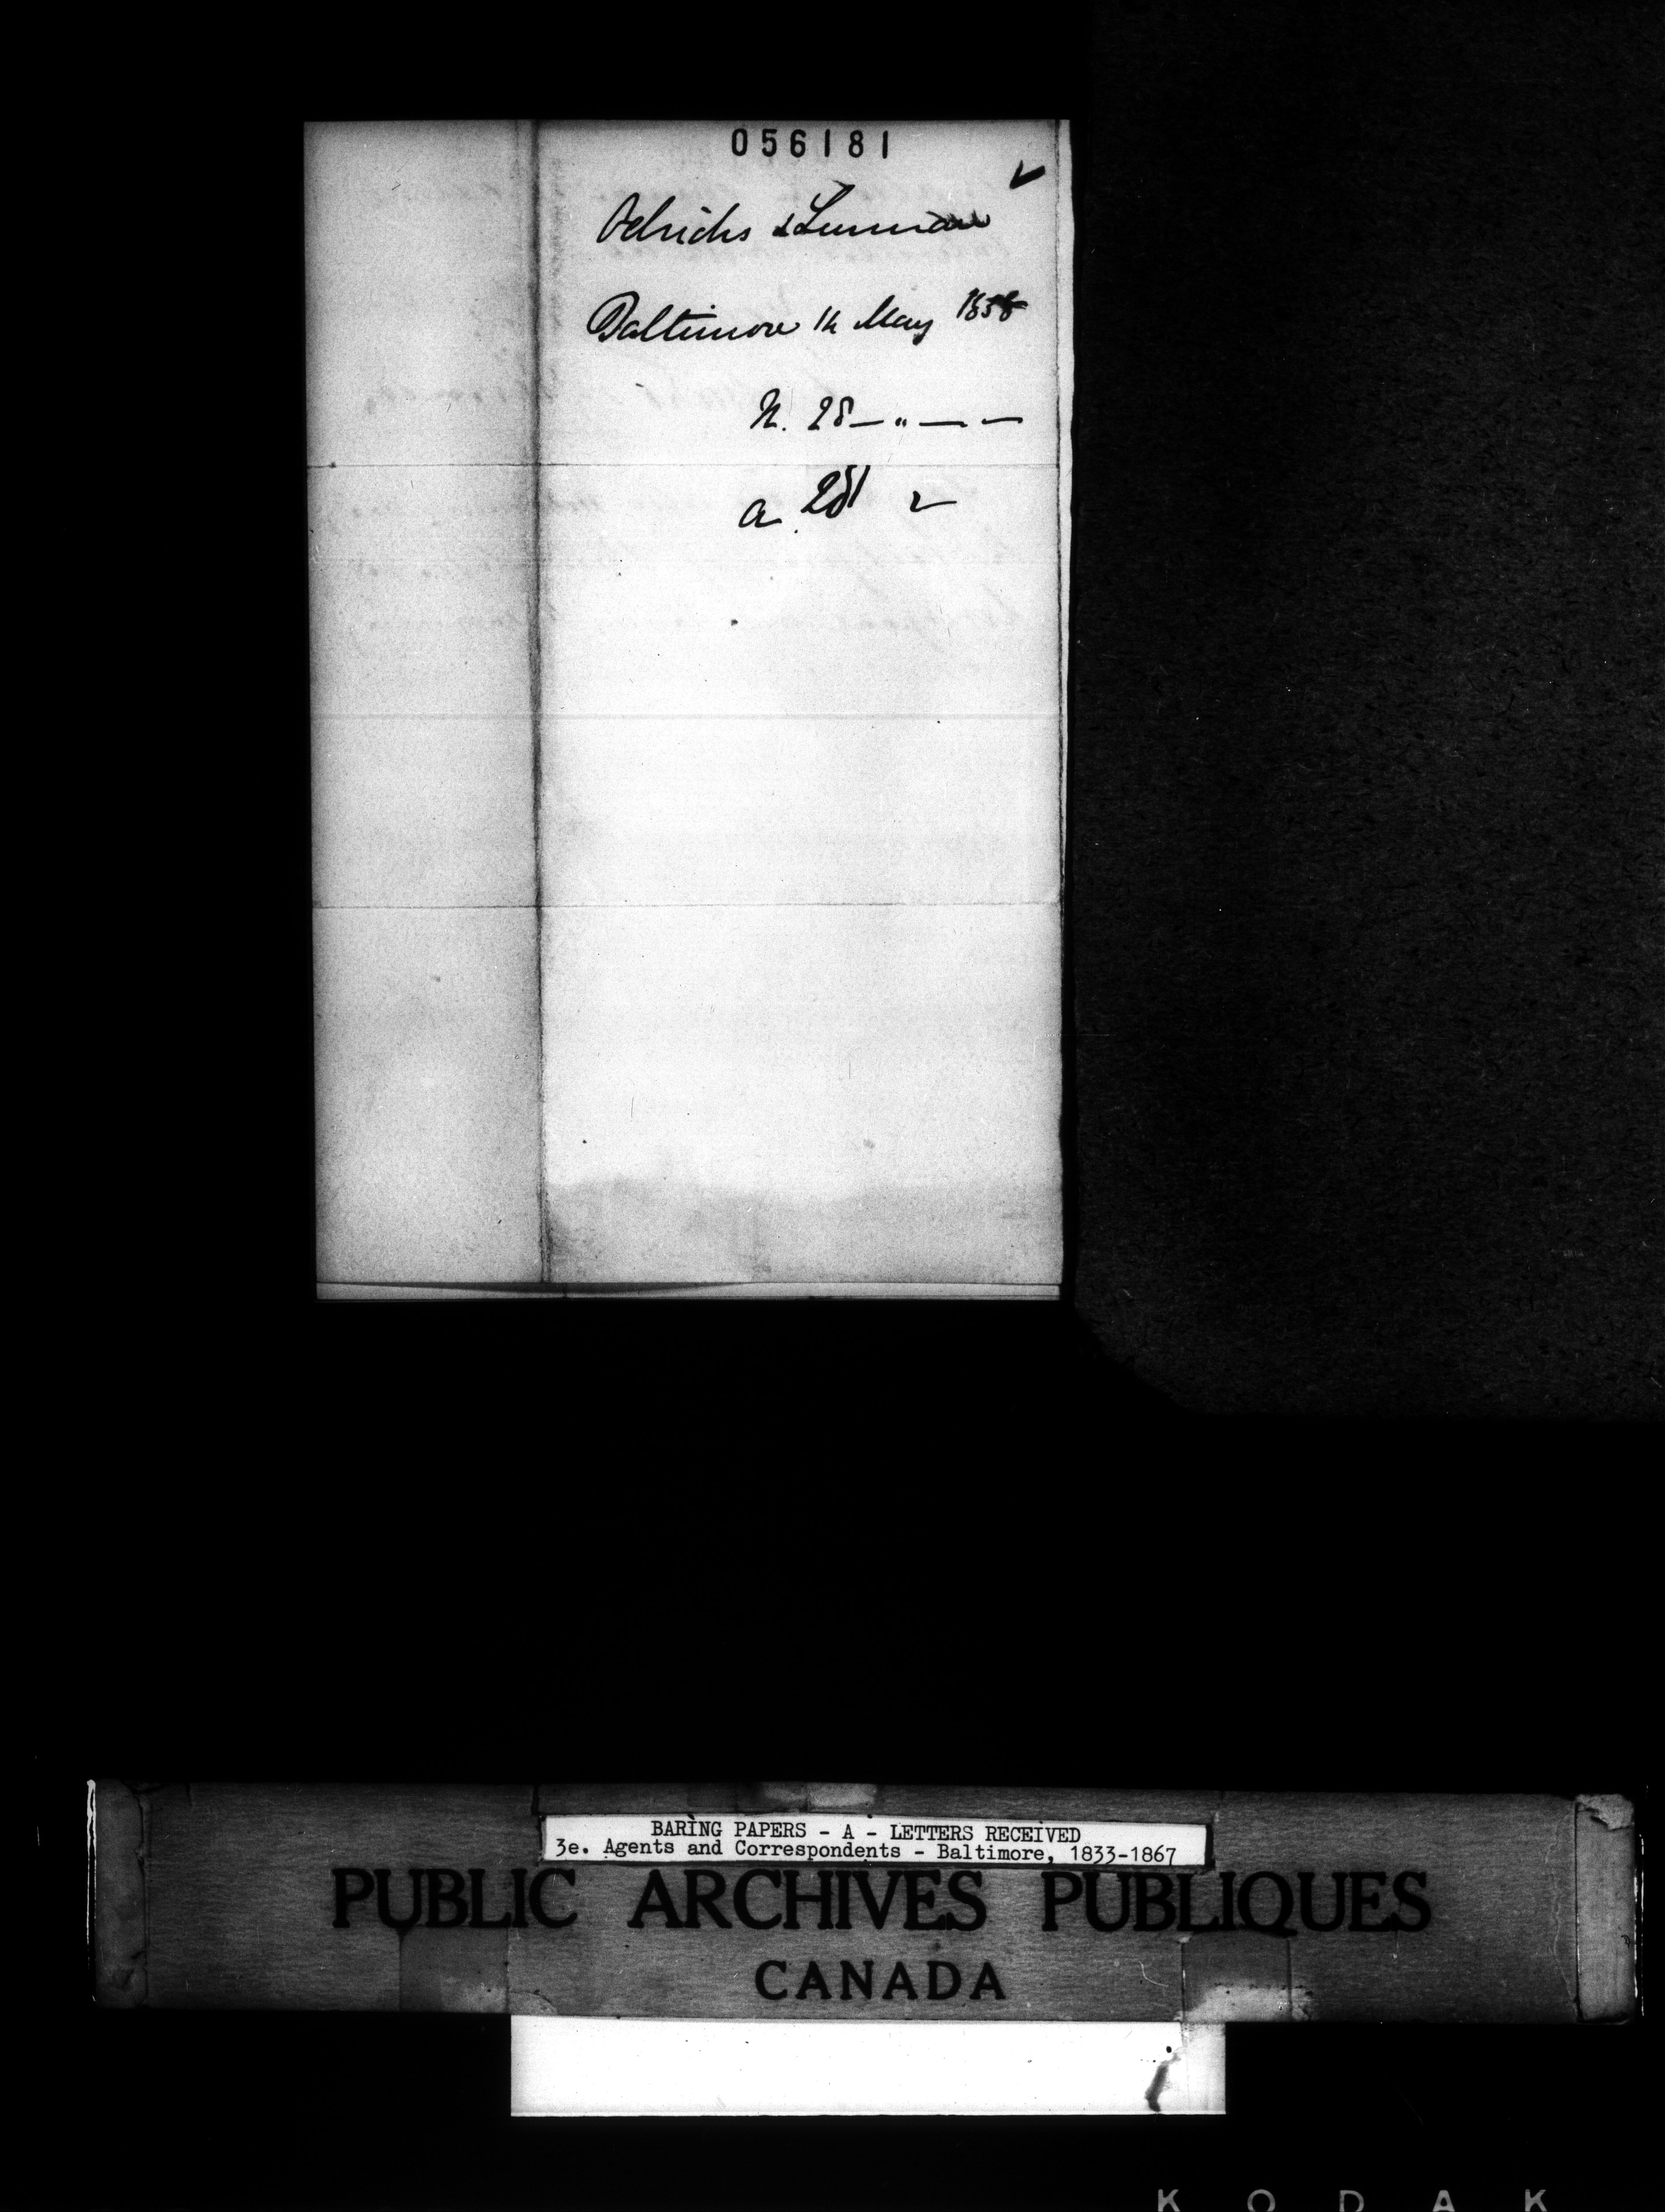 056181
Oelrichs & Lurman
Baltimore 14 May 1858
R. 28 — " — —
a. 281
BARING PAPERS - A - LETTERS RECEIVED
3e. Agents and Correspondents - Baltimore, 1833-1867
PUBLIC ARCHIVES PUBLIQUES
CANADA
KODAK